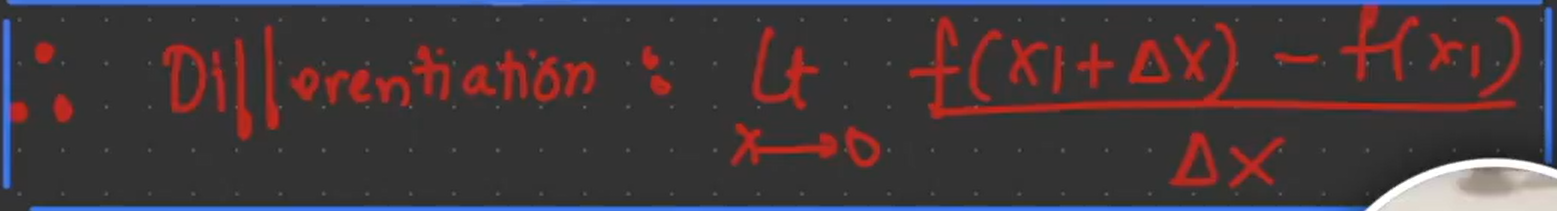 ∴ Differentiation : Lt f(x1+Δx) - f(x1)
x→0 Δx